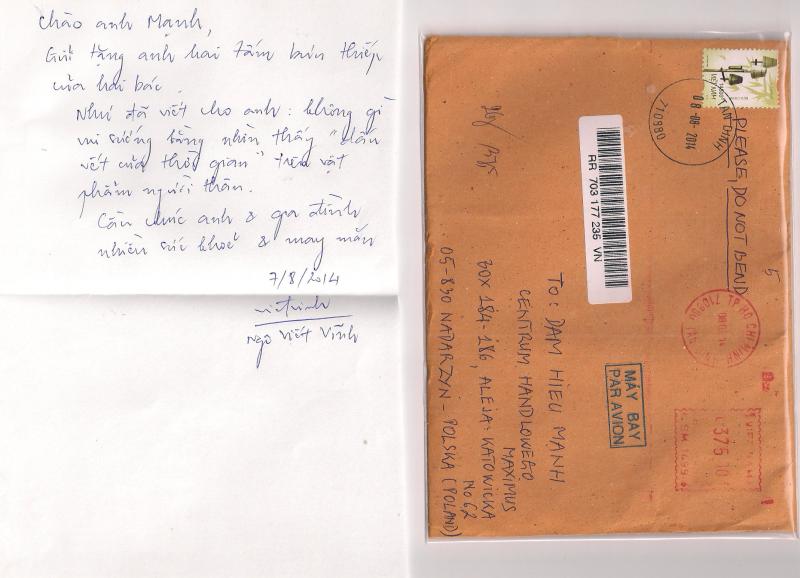 Chào anh Mạnh,
Gửi tặng anh hai tấm bưu thiếp
của hai bác.
Như đã viết cho anh: không gì
vui sướng bằng nhìn thấy "dấu
vết của thời gian" trên vật
phẩm người thân.
Cầu chúc anh & gia đình
nhiều sức khoẻ & may mắn
7/8/2014
Ngô Viết Vinh
VIỆT NAM
TAN DINH
08-08-2014
710980
PLEASE, DO NOT BEND
5
RR 703 177 235 VN
TP HO CHI MINH
MÁY BAY
PAR AVION
375 10
TO: DAM HIEU MANH
CENTRUM HANDLOWEGO
MAXIMUS
BOX 184-186, ALEJA: KATOWICKA
No 62
05-830 NADARZYN - POLSKA (POLAND)